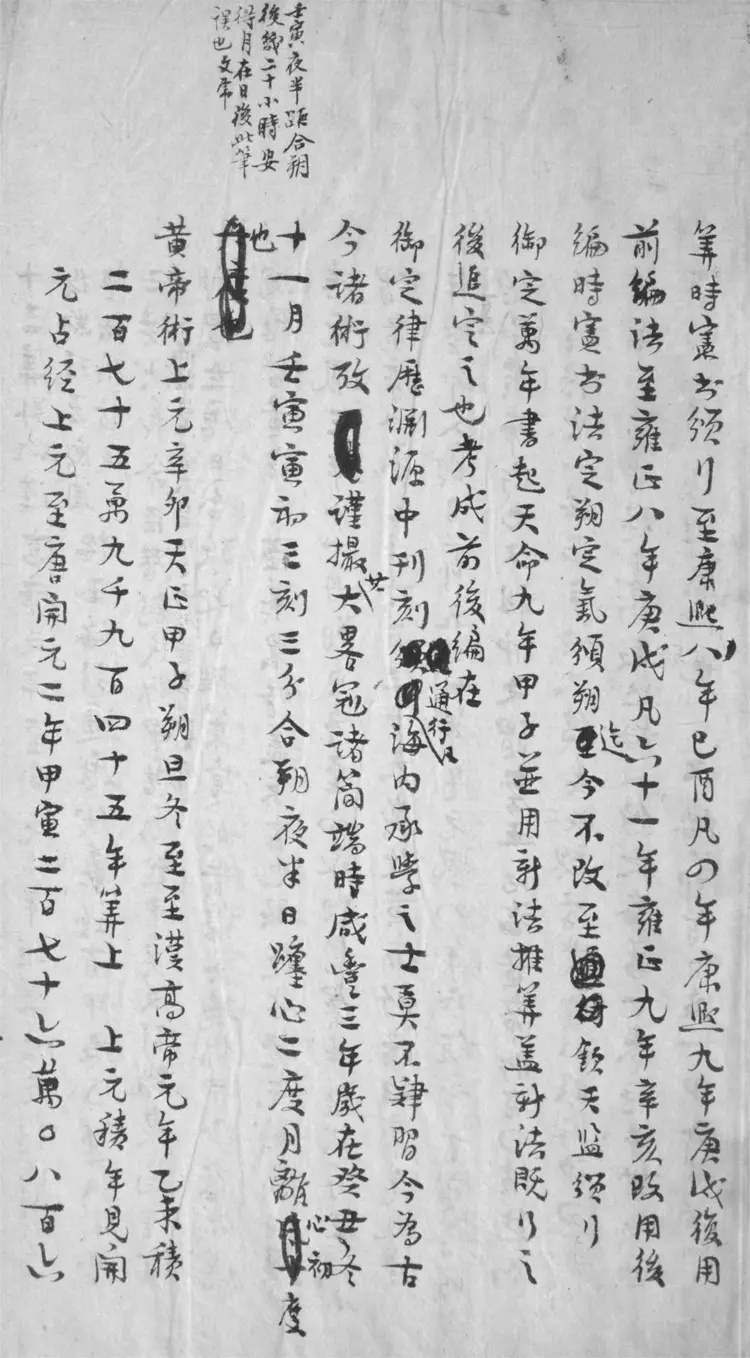 壬寅夜半距合朔
後幾二十小時安
得月在日後此筆
誤也文常
筭時憲書頒行至康熙八年己酉凡四年康熙九年庚戌復用
前編法至雍正八年庚戌凡六十一年雍正九年辛亥改用後
編時憲書法定朔定氣頒朔迄今不改至欽天監頒行
御定萬年書起天命九年甲子並用新法推筭蓋新法既行之
後追定之也考成前後編在
御定律歷淵源中刊刻通行海内承學之士莫不肄習今為古
今諸術攷謹撮其大畧冠諸簡端時咸豐三年歲在癸丑冬
十一月壬寅寅初三刻三分合朔夜半日躔心二度月離心初度
也
黃帝術上元辛卯天正甲子朔旦冬至至漢高帝元年乙未積
二百七十五萬九千九百四十五年筭上 上元積年見開
元占經上元至唐開元二年甲寅二百七十六萬〇八百六